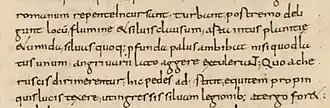 romanum repente incursant turbant postremo deli
gunt locum flumine & siluis clausum, arta intus planitie
& umida siluas quoq; pfunda palus ambibat nisi quod la
tus unum angriuarii lato aggere extulerant. Quo ache
ruscis dirimerentur. hic pedes adstitit, equitem propin
quis lucis texere, ut ingressis siluam legionib; atergo foret